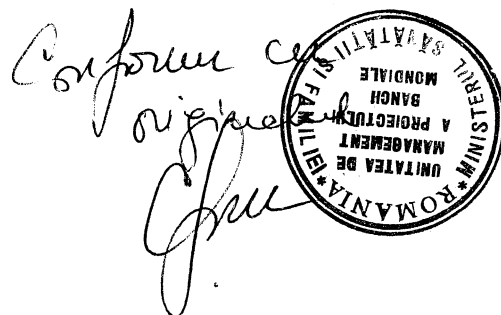 Conform cu
originalul
ROMANIA * MINISTERUL SĂNĂTĂȚII ȘI FAMILIEI *
UNITATEA DE
MANAGEMENT
A PROIECTULUI
BANCII
MONDIALE